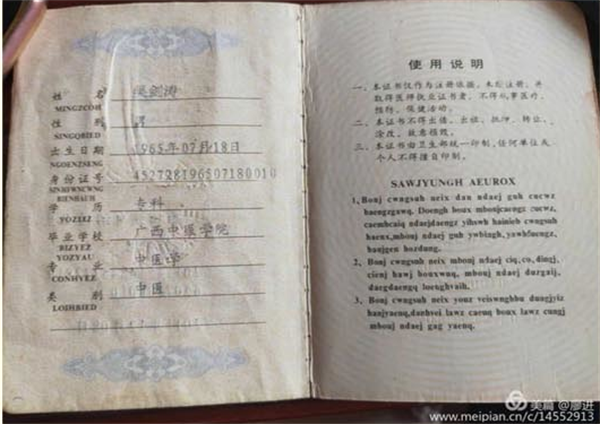 姓 名 吴剑涛
MINGZCOH
性 别 男
SINGQBIED
出生日期 1965年07月18日
NGOENZSENG
身份证号 452728196507180010
SINHWNCWNG
BIENHAUH
学 历 专科
YOZLIZ
毕业学校 广西中医学院
BIZYEZ
YOZYAU
专 业 中医学
CONHYEZ
类 别 中医
LOIHBIED
使用说明
一、本证书仅作为注册依据。未经注册,并
取得医师执业证书者,不得从事医疗、
预防、保健活动。
二、本证书不得出借、出租、抵押、转让、
涂改、故意损毁。
三、本证书由卫生部统一印制,任何单位或
个人不得擅自印制。
SAWJYUNGH AEUROX
1、Bonj cwngsuh neix dan ndaej guh cucwz
baengzgawq. Doengh boux mbonjcaengz cucwz,
caemhcaiq ndaejdaengz yihswh hainieb cwngsuh
haenx,mbouj ndaej guh ywbingh,yawhfuengz,
baujgen hozdung.
2、Bonj cwngsuh neix mbouj ndaej ciq,co,dingj,
cienj hawj bouxwnq, mbouj ndaej durgaij,
daegdaengq loenghvaih.
3、Bonj cwngsuh neix youz veiswnghbu dungjyiz
hanjyaenq,danhvei lawz caeuq boux lawz cungj
mbouj ndaej gag yaenq.
美篇 @廖进
www.meipian.cn/c/14552913